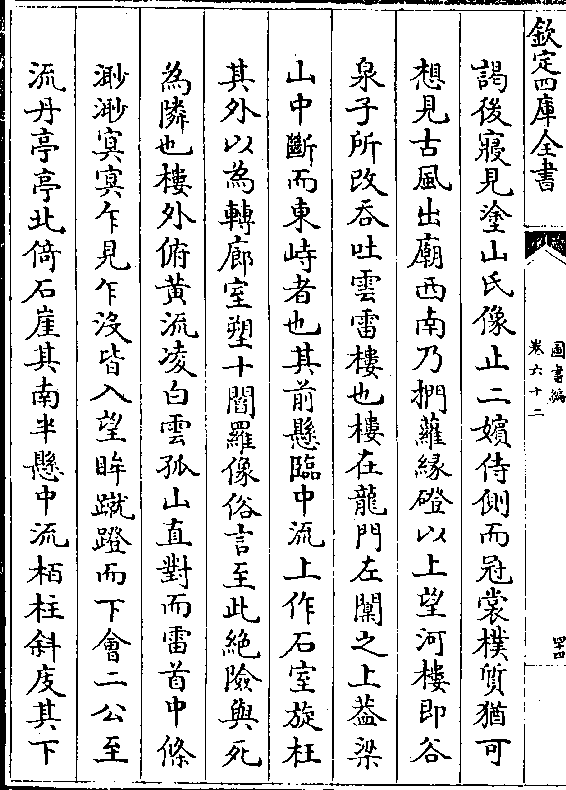 欽定四庫全書
圖書編
卷六十二
四十四
謁後寢見塗山氏像止二嬪侍側而冠裳樸質猶可
想見古風出廟西南乃捫蘿緣磴以上望河樓即谷
泉子所改吞吐雲雷樓也樓在龍門左闑之上葢梁
山中斷而東峙者也其前懸臨中流上作石室旋枉
其外以為轉廊室塑十閻羅像俗言至此絶險與死
為隣也樓外俯黄流凌白雲孤山直對而雷首中條
渺渺寞寞乍見乍没皆入望眸蹴蹬而下會二公至
流丹亭亭北倚石崖其南半懸中流栢柱斜庋其下